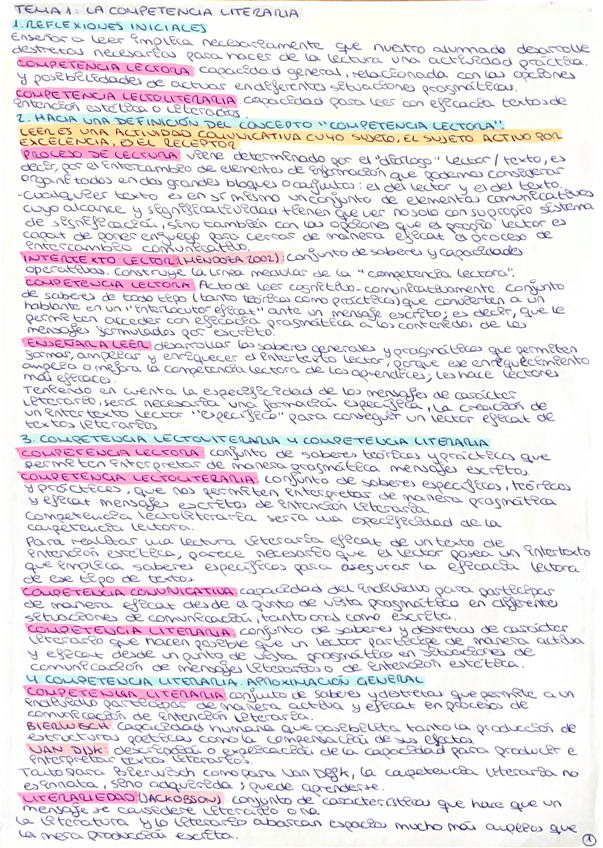 TEMA 1: LA COMPETENCIA LITERARIA
1. REFLEXIONES INICIALES
Enseñar a leer implica necesariamente que nuestro alumnado desarrolle
destrezas necesarias para hacer de la lectura una actividad práctica.
COMPETENCIA LECTORA: capacidad general, relacionada con las opciones
y posibilidades de actuar en diferentes situaciones pragmáticas.
COMPETENCIA LECTOLITERARIA: capacidad para leer con eficacia textos de
intención estética o literarios.
2. HACIA UNA DEFINICIÓN DEL CONCEPTO "COMPETENCIA LECTORA"
LEER ES UNA ACTIVIDAD COMUNICATIVA CUYO SUJETO, EL SUJETO ACTIVO POR
EXCELENCIA, ES EL RECEPTOR
PROCESO DE LECTURA: viene determinado por el "diálogo" lector/texto, es
decir, por el intercambio de elementos de información que podemos considerar
organizados en dos grandes bloques o conjuntos: el del lector y el del texto.
-Cualquier texto es en sí mismo un conjunto de elementos comunicativos
cuyo alcance y significatividad tienen que ver no solo con su propio sistema
de significación, sino también con las opciones que el propio lector es
capaz de poner en juego para cerrar de manera eficaz el proceso de
intercambio comunicativo.
INTERTEXTO LECTOR (MENDOZA 2002): conjunto de saberes y capacidades
operativas. Construye la línea medular de la "competencia lectora".
COMPETENCIA LECTORA: Acto de leer cognitivo-comunicativamente. Conjunto
de saberes de todo tipo (tanto teóricos como prácticos) que convierten a un
hablante en un "interlocutor eficaz" ante un mensaje escrito; es decir, que le
permiten acceder con eficacia pragmática a los contenidos de los
mensajes formulados por escrito.
ENSEÑAR A LEER: desarrollar los saberes generales y pragmáticos que permiten
formar, ampliar y enriquecer el intertexto lector, porque ese enriquecimiento
amplía o mejora la competencia lectora de los aprendices; les hace lectores
más eficaces.
Teniendo en cuenta la especificidad de los mensajes de carácter
literario será necesaria una formación específica, la creación de
un intertexto lector "específico" para conseguir un lector eficaz de
textos literarios.
3. COMPETENCIA LECTOLITERARIA Y COMPETENCIA LITERARIA
COMPETENCIA LECTORA: conjunto de saberes teóricos y prácticos que
permiten interpretar de manera pragmática mensajes escritos.
COMPETENCIA LECTOLITERARIA: conjunto de saberes específicos, teóricos
y prácticos, que nos permiten interpretar de manera pragmática
y eficaz mensajes escritos de intención literaria.
Competencia lectoliteraria sería una especificidad de la
competencia lectora.
Para realizar una lectura literaria eficaz de un texto de
intención estética, parece necesario que el lector posea un intertexto
que implica saberes específicos para asegurar la eficacia lectora
de ese tipo de textos.
COMPETENCIA COMUNICATIVA: capacidad del individuo para participar
de manera eficaz desde el punto de vista pragmático en diferentes
situaciones de comunicación, tanto oral como escrita.
COMPETENCIA LITERARIA: conjunto de saberes y destrezas de carácter
literario que hacen posible que un lector participe de manera activa
y eficaz desde un punto de vista pragmático en situaciones de
comunicación de mensajes literarios o de intención estética.
4 COMPETENCIA LITERARIA. APROXIMACIÓN GENERAL
COMPETENCIA LITERARIA: conjunto de saberes y destrezas que permite a un
individuo participar de manera activa y eficaz en procesos de
comunicación de intención literaria.
BIERWISCH: Capacidad humana que posibilita tanto la producción de
estructuras poéticas como la comprensión de sus efectos.
VAN DIJK: descripción o explicación de la capacidad para producir e
interpretar textos literarios.
Tanto para Bierwisch como para Van Dijk, la competencia literaria no
es innata, sino adquirida y puede aprenderse.
LITERARIEDAD (JACKOBSON): conjunto de características que hace que un
mensaje se considere literario o no.
La literatura y lo literario abarcan espacios mucho más amplios que
la mera producción escrita.
1